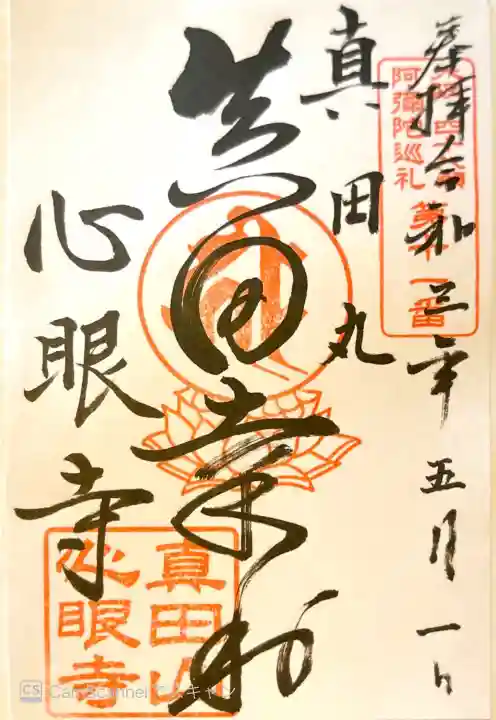 奉拝令和三年五月一日
阿彌陀巡礼
第十一番
真田丸
真田幸村
心眼寺
真田山
心眼寺
CS CamScannerでスキャン